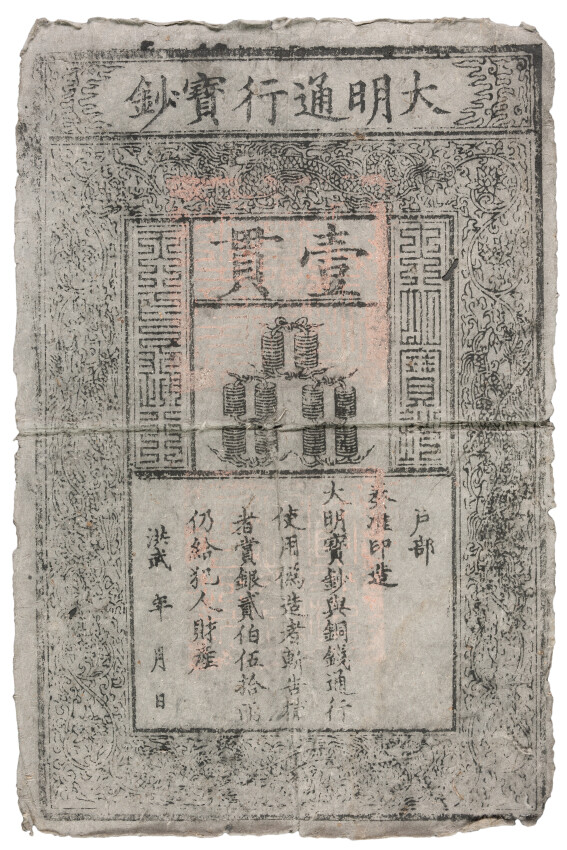 大明通行寶鈔
壹貫
戶部
奏准印造
大明寶鈔與銅錢通行
使用僞造者斬告捕
者賞銀貳伯伍拾兩
仍給犯人財產
洪武 年 月 日